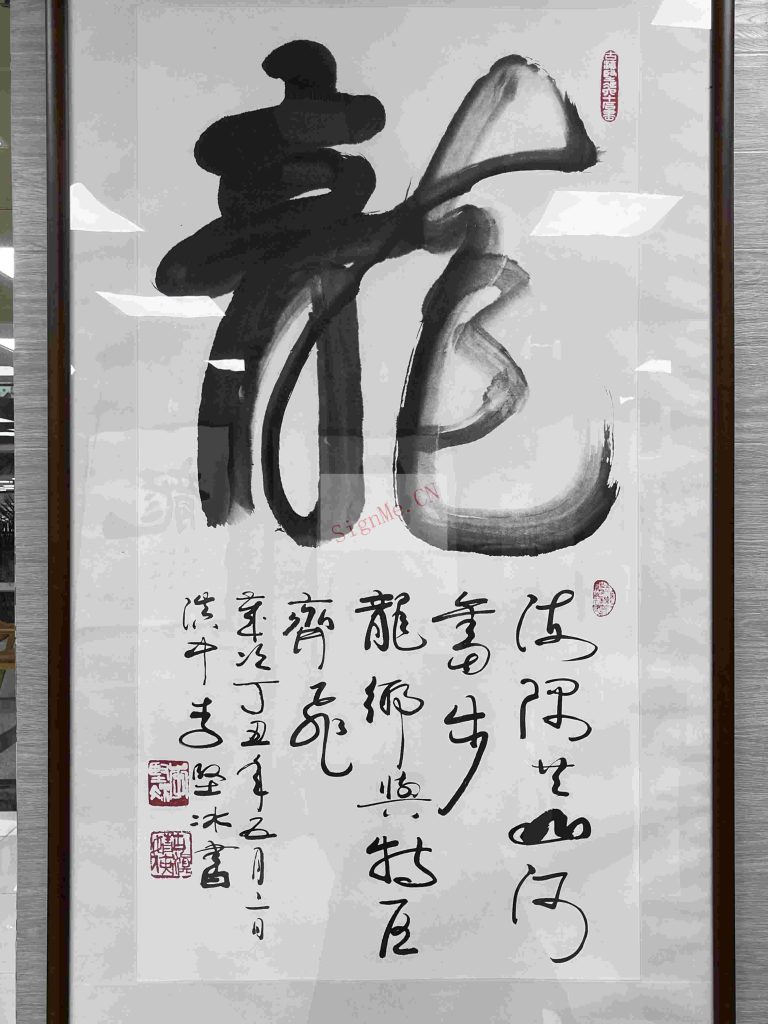 龍
海隅共山河
奮步
龍鄉與特区
齊飛
歲次丁丑年五月二日
洪中李堅冰書
SignMe.CN